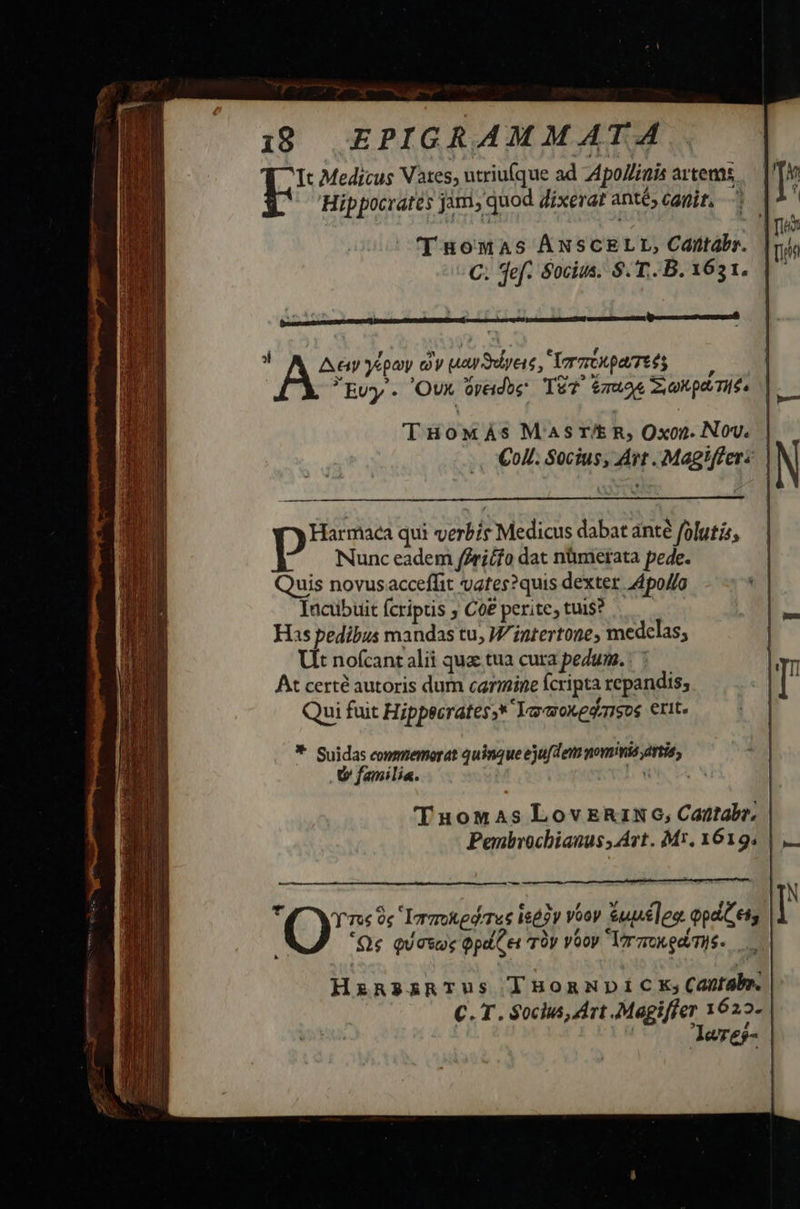 18 EPIGRAMMATA
FIt Medicus Vates, utriuſque ad Apollinis artems
Hippocrates jam, quod dixerat antè, canit.
THOMAS ANSCELL, Cantabr.
C. Jeſ. Socius. S. T. B. 1631.
THOMAS MASTER, Oxon. Nov.
Coll. Socius, Art. Magiſter.
PHarmaca qui verbis Medicus dabat antè ſolutis,
Nunc eadem ſtricto dat nùmerata pede.
Quis novus acceſſit vates? quis dexter Apollo
Incubuit ſcriptis, Coë perite, tuis?
His pedibus mandas tu, Wintertone, medelas,
Ut noſcant alii quæ tua cura pedum.
At certè autoris dum carmine ſcripta repandis,
Qui fuit Hippocrates,* Ἱπποκράτισος erit.
* Suidas commemorat quinque ejuſdem nominis, artis,
& familiæ.
THOMAS LOVERING, Cantabr.
Pembrochianus, Art. Mr. 1619.
ΟΥτος ὃς Ἱπποκράτυς ἱερὸν νόον ἔμμετρα φράζει,
Ὡς φύσεως φράζει τὸν νόον Ἱπποκράτης.
HERBERTUS THORNDICK, Cantabr.
C. T. Socius, Art. Magiſter 1622.